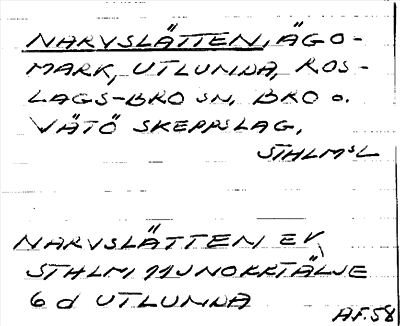 NARVSLÄTTEN, ÄGO-
MARK, UTLUNDA, ROS-
LAGS-BRO SN, BRO o.
VÄTÖ SKEPPSLAG,
STHLMsL
NARVSLÄTTEN EV.
STHLM 11J NORRTÄLJE
6 d UTLUNDA
AF.58